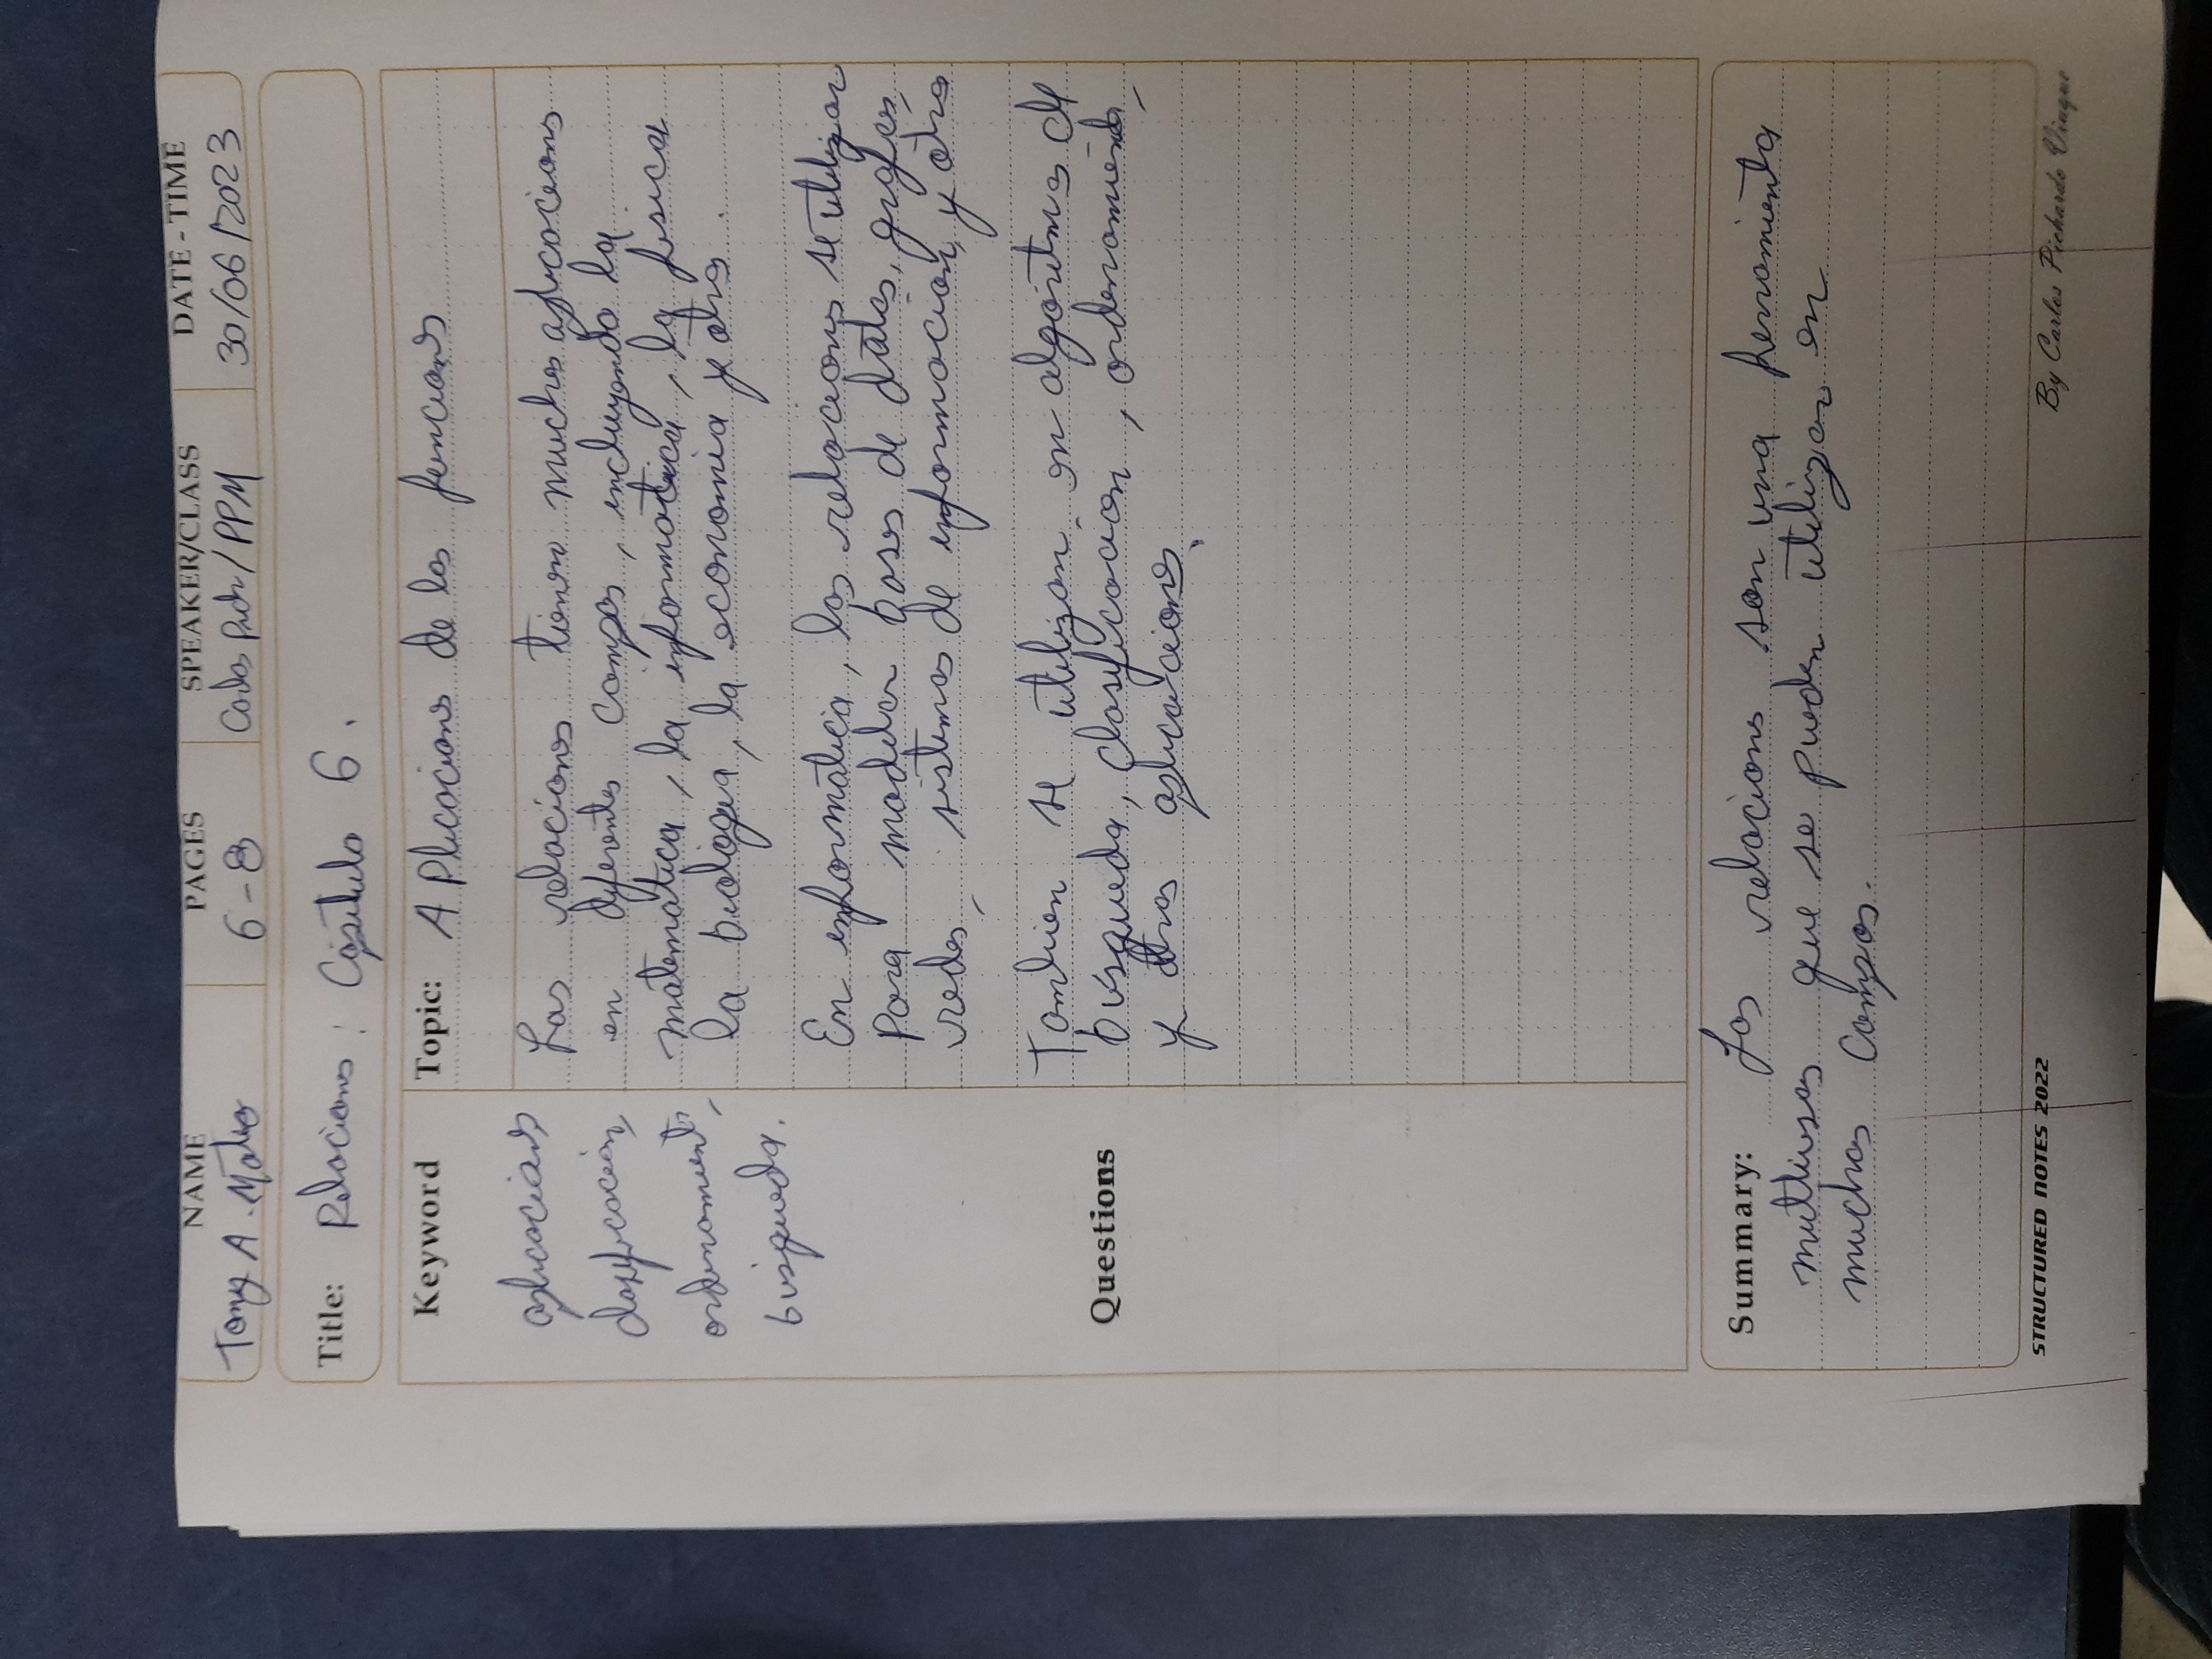 NAME PAGES SPEAKER/CLASS DATE - TIME
Tony A. Mateo 6-8 Carlos / PPM 30/06/2023
Title: Relaciones: Capítulo 6.
Keyword
aplicaciones
clasificación,
ordenamiento,
búsqueda.
Questions
Topic: Aplicaciones de las funciones
Las relaciones tienen muchas aplicaciones
en diferentes campos, incluyendo la
matematica, la informatica, la fisica
la biologia, la economia y otras.
En informática, las relaciones se utilizan
para modelar bases de datos, grafos,
redes, sistemas de información, y otros
Tambien se utilizan en algoritmos de
búsqueda, clasificacion, ordenamiento,
y otras aplicaciones.
Summary: Las relaciones son una herramienta
multiusos que se pueden utilizar en
muchos campos.
STRUCTURED NOTES 2022
By Carlos Pichardo Viuque